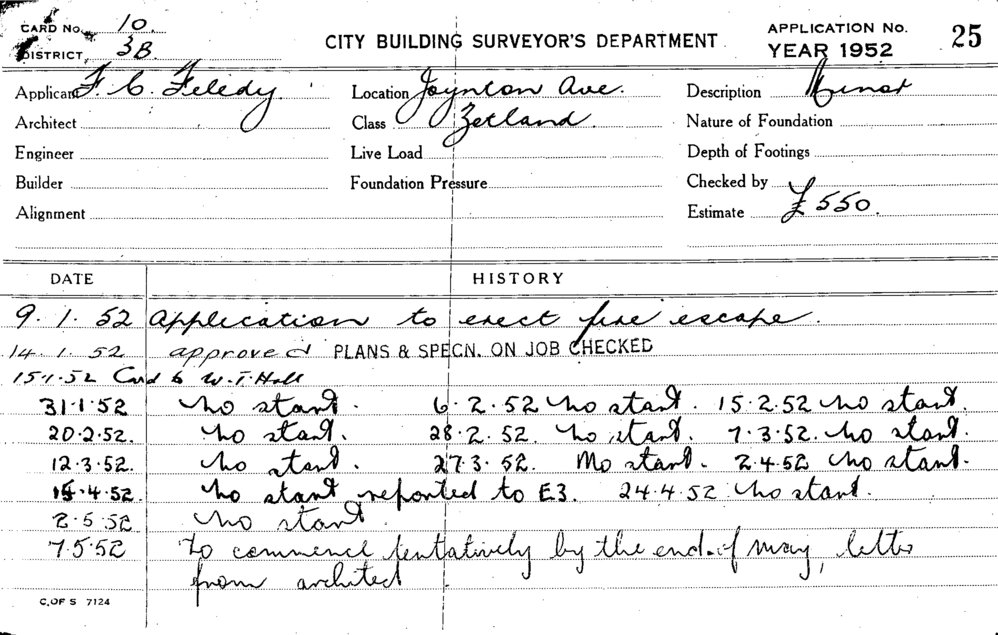 CARD No. 10.
DISTRICT, 3B.
CITY BUILDING SURVEYOR'S DEPARTMENT
APPLICATION No.
YEAR 1952
25
Applicant F. C. Feledy Location Joynton Ave. Description Minor
Architect Class Zetland. Nature of Foundation
Engineer Live Load Depth of Footings
Builder Foundation Pressure Checked by
Alignment Estimate £550.
DATE HISTORY
9.1.52 Application to erect fire escape.
14.1.52 approved PLANS & SPECN. ON JOB CHECKED
15.1.52 Card to W.T. Hall
31.1.52 No start. 6.2.52 No start. 15.2.52 No start.
20.2.52. No start. 28.2.52. No start. 7.3.52. No start.
12.3.52. No start. 27.3.52. No start. 2.4.52 No start.
15.4.52. No start reported to E3. 24.4.52 No start.
2.5.52 No start.
7.5.52 To commence tentatively by the end of may, letter
from architect
C. OF S 7124